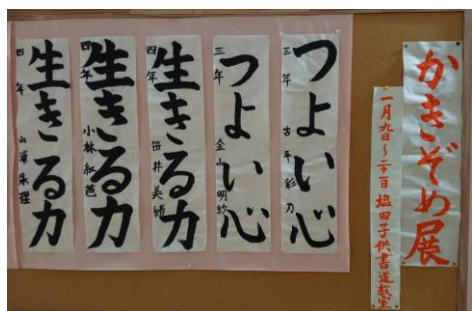 かきぞめ展
一月九日～二十日 塩田子供書道教室
つよい心
三年 古平彩乃
つよい心
三年 金山明紗
生きる力
四年 笹井美績
生きる力
四年 小林紅芭
生きる力
四年